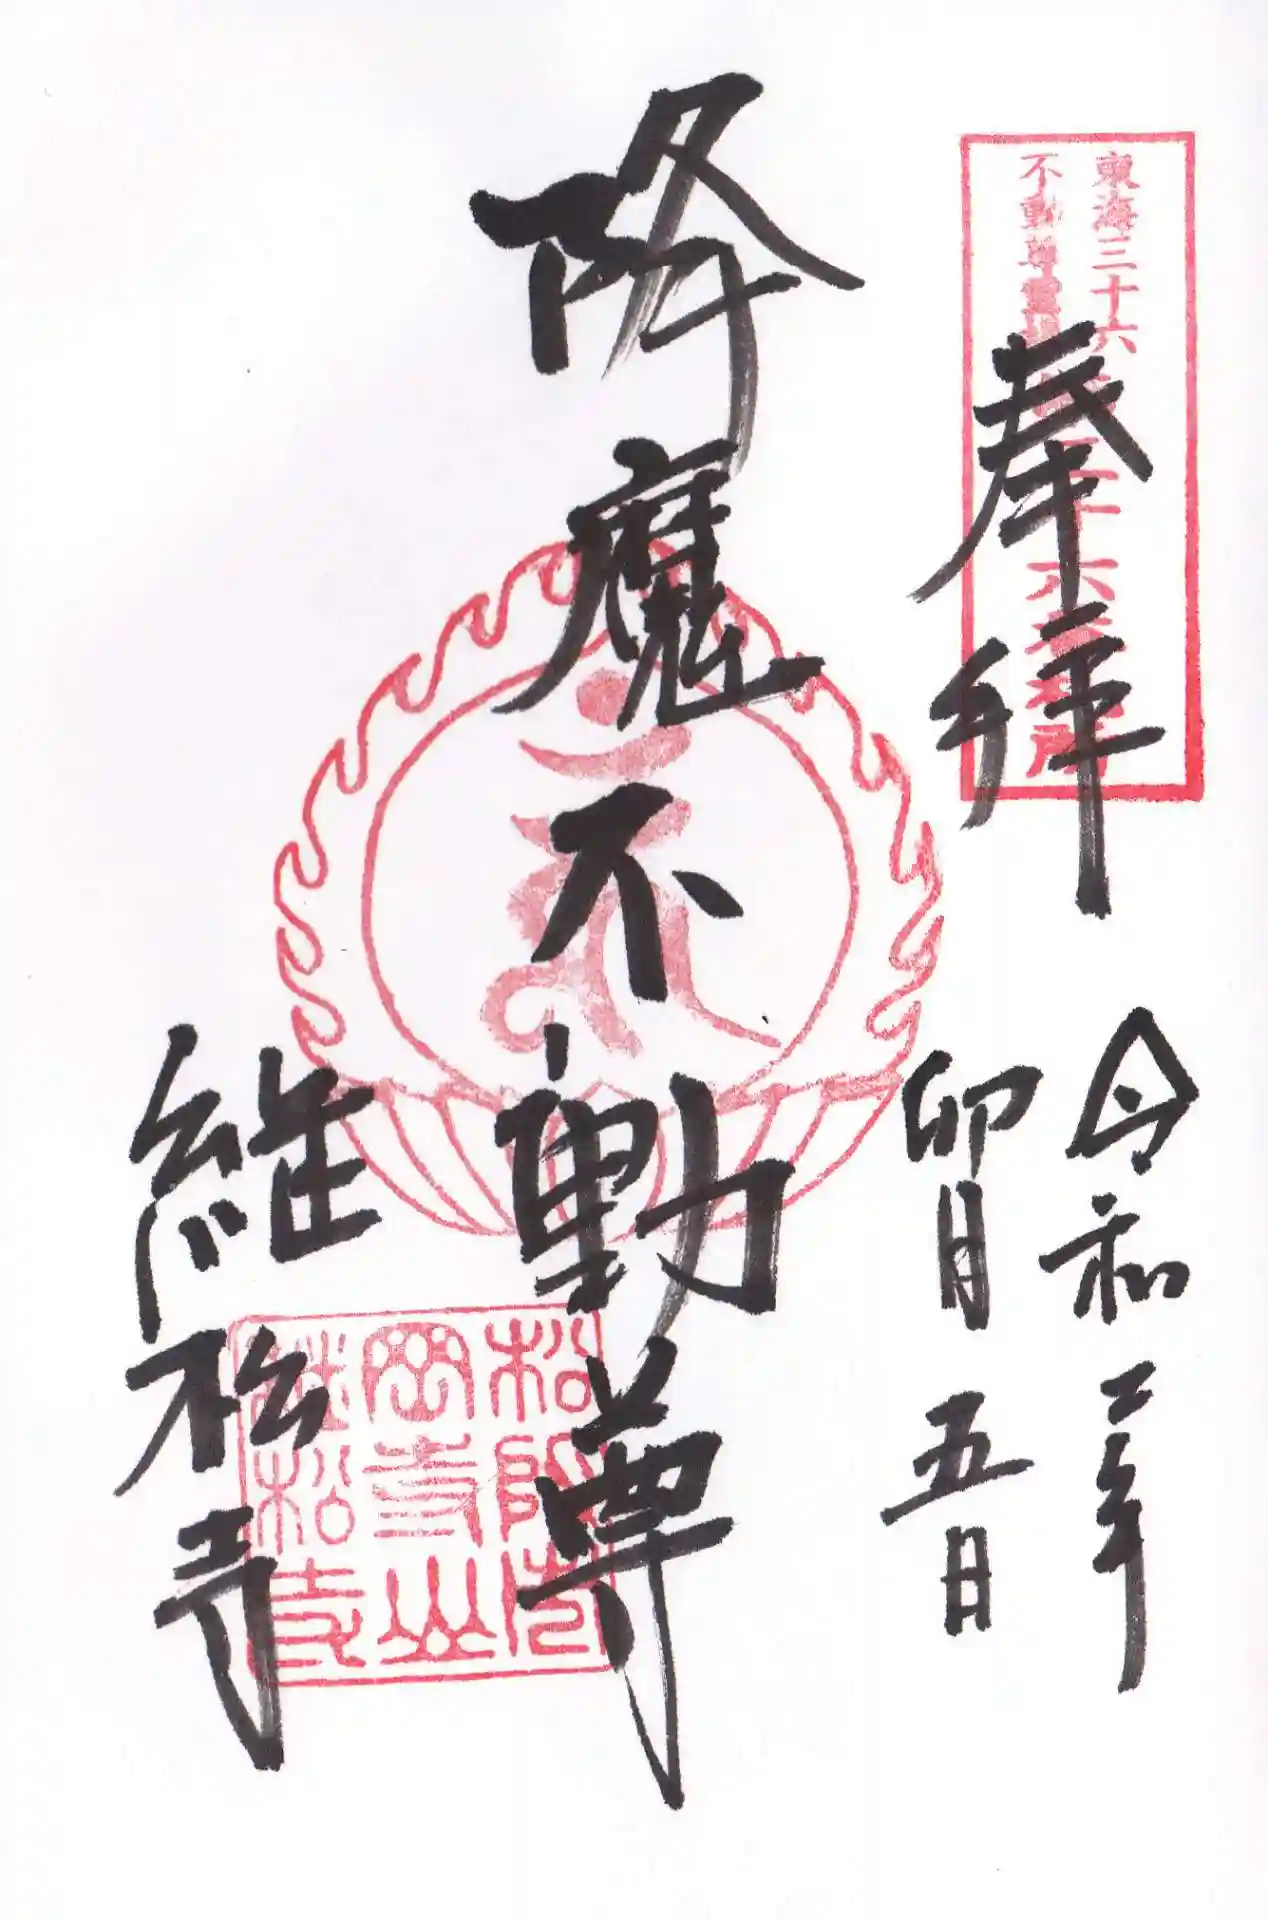 東海三十六
不動尊霊場
奉拝
令和二年
卯月五日
降魔不動尊
継松寺
松阪市
岡寺山
継松寺